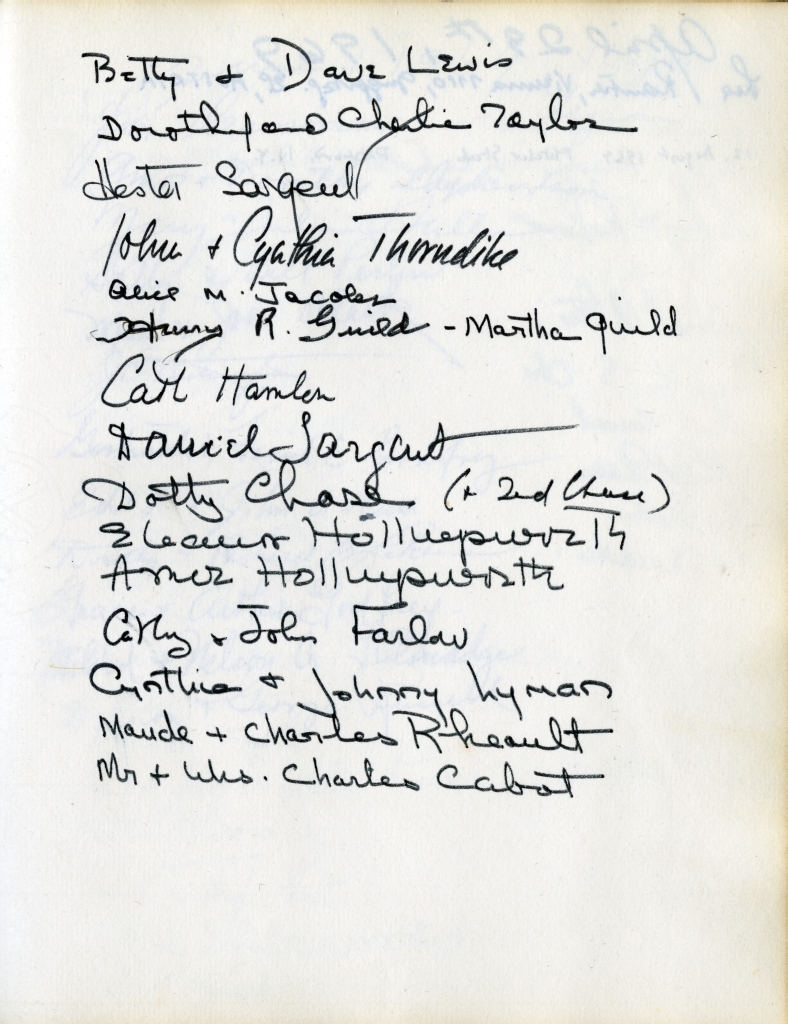 Betty & Dave Lewis
Dorothy and Charlie Taylor
Hester Sargent
John + Cynthia Thorndike
Alice M. Jacobs
Henry R. Guild - Martha Guild
Carl Hamlen
Daniel Sargent
Dotty Chase (+ 2nd Chase)
Eleanor Hollingsworth
Amor Hollingsworth
Cathy & John Farlow
Cynthia + Johnny Lyman
Maude + Charles Rheault
Mr + Mrs. Charles Cabot